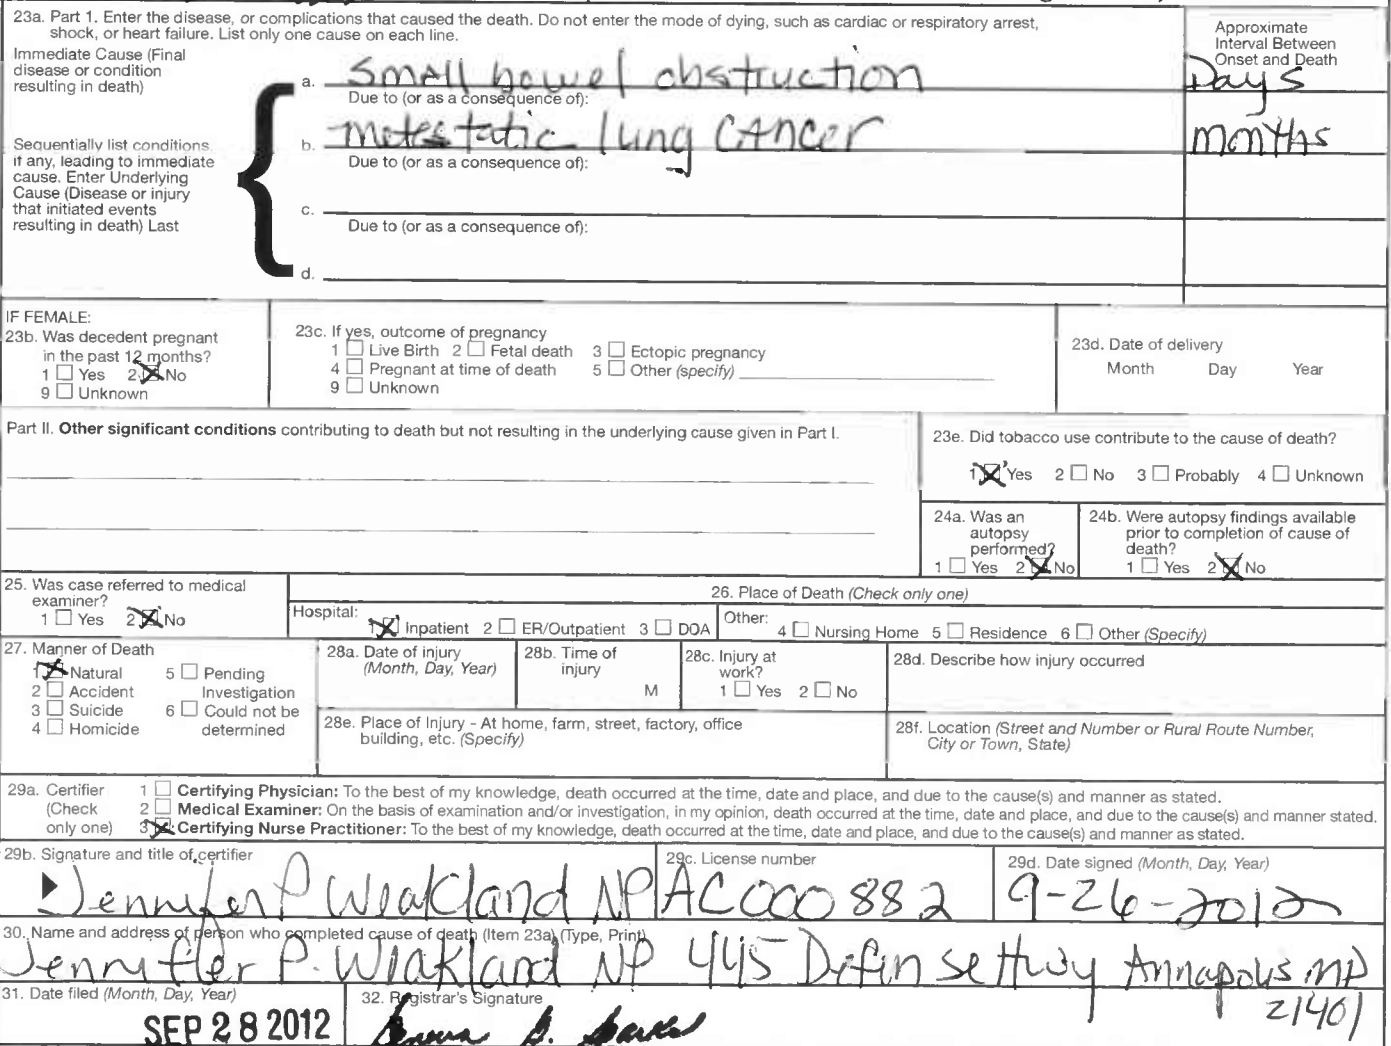 23a. Part 1. Enter the disease, or complications that caused the death. Do not enter the mode of dying, such as cardiac or respiratory arrest,
shock, or heart failure. List only one cause on each line.
Approximate
Interval Between
Onset and Death
Immediate Cause (Final
disease or condition
resulting in death)
a. Small bowel obstruction
Days
Due to (or as a consequence of):
b. metestatic lung CANCER
months
Sequentially list conditions,
if any, leading to immediate
cause. Enter Underlying
Cause (Disease or injury
that initiated events
resulting in death) Last
Due to (or as a consequence of):
c.
Due to (or as a consequence of):
d.
IF FEMALE:
23b. Was decedent pregnant
in the past 12 months?
1 Yes 2 No
9 Unknown
23c. If yes, outcome of pregnancy
1 Live Birth 2 Fetal death 3 Ectopic pregnancy
4 Pregnant at time of death 5 Other (specify)
9 Unknown
23d. Date of delivery
Month Day Year
Part II. Other significant conditions contributing to death but not resulting in the underlying cause given in Part I.
23e. Did tobacco use contribute to the cause of death?
1 Yes 2 No 3 Probably 4 Unknown
24a. Was an
autopsy
performed?
1 Yes 2 No
24b. Were autopsy findings available
prior to completion of cause of
death?
1 Yes 2 No
25. Was case referred to medical
examiner?
1 Yes 2 No
26. Place of Death (Check only one)
Hospital: 1 Inpatient 2 ER/Outpatient 3 DOA
Other: 4 Nursing Home 5 Residence 6 Other (Specify)
27. Manner of Death
1 Natural 5 Pending
2 Accident Investigation
3 Suicide 6 Could not be
4 Homicide determined
28a. Date of injury
(Month, Day, Year)
28b. Time of
injury
M
28c. Injury at
work?
1 Yes 2 No
28d. Describe how injury occurred
28e. Place of Injury - At home, farm, street, factory, office
building, etc. (Specify)
28f. Location (Street and Number or Rural Route Number,
City or Town, State)
29a. Certifier
(Check
only one)
1 Certifying Physician: To the best of my knowledge, death occurred at the time, date and place, and due to the cause(s) and manner as stated.
2 Medical Examiner: On the basis of examination and/or investigation, in my opinion, death occurred at the time, date and place, and due to the cause(s) and manner stated.
3 Certifying Nurse Practitioner: To the best of my knowledge, death occurred at the time, date and place, and due to the cause(s) and manner as stated.
29b. Signature and title of certifier
Jennifer P Weakland NP
29c. License number
AC000882
29d. Date signed (Month, Day, Year)
9-26-2012
30. Name and address of person who completed cause of death (Item 23a) (Type, Print)
Jenniffer P. Weakland NP 445 Defense Hwy Annapolis MD
21401
31. Date filed (Month, Day, Year)
SEP 28 2012
32. Registrar's Signature